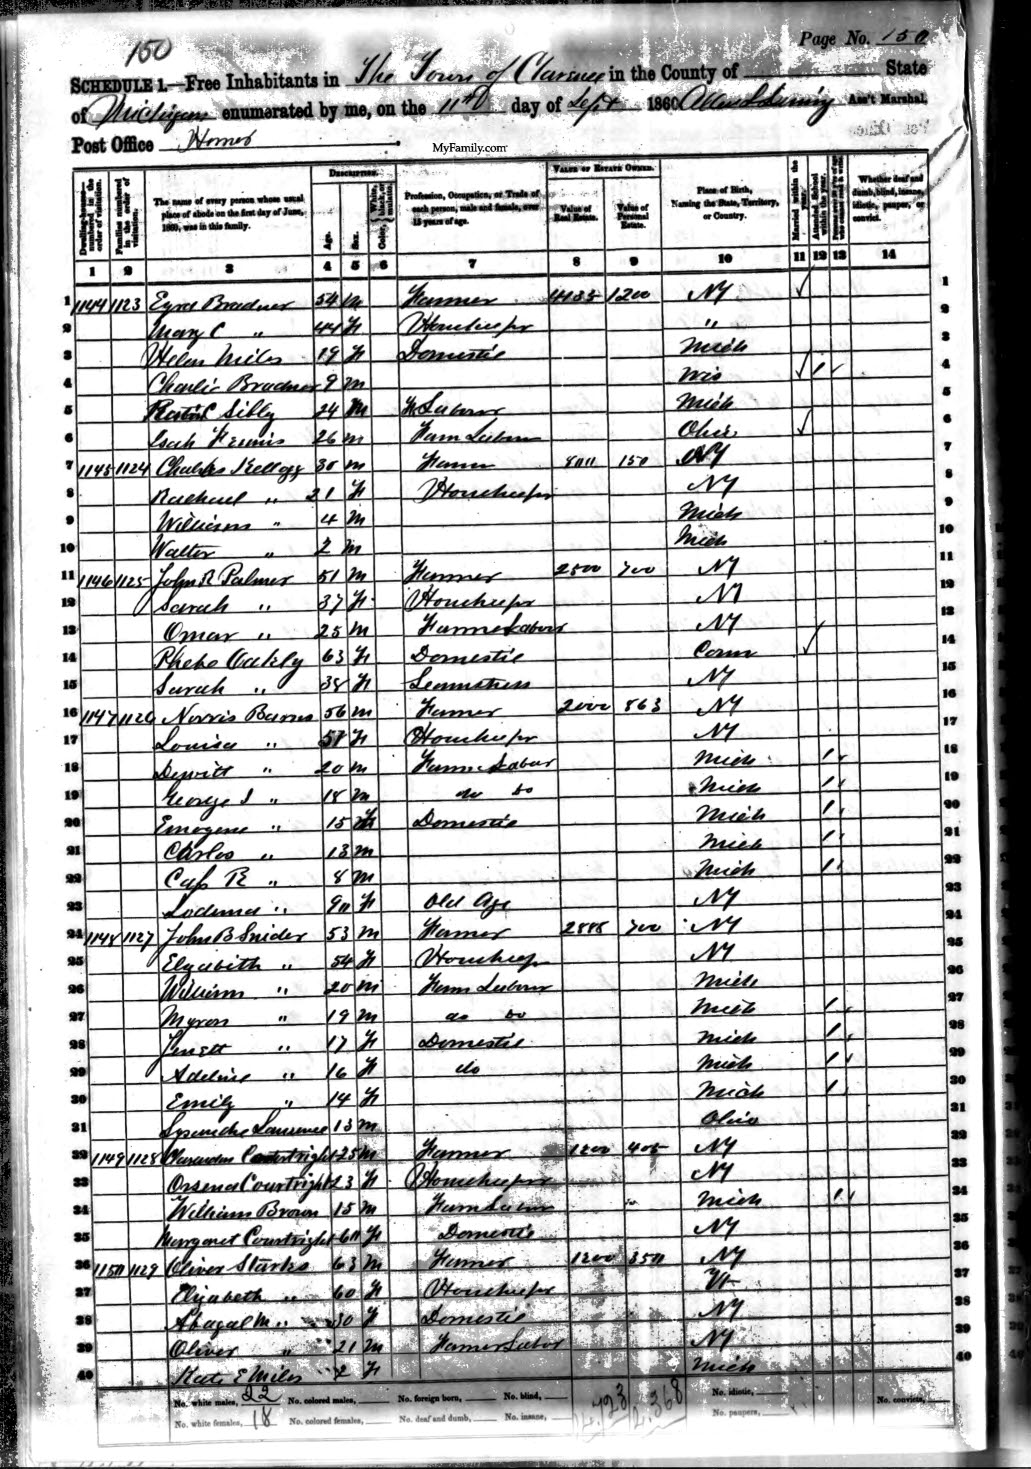 150
Page No. 150
SCHEDULE 1.—Free Inhabitants in The Town of Clarence in the County of State
of Michigan enumerated by me, on the 11th day of Sept 1860 Ass't Marshal.
Post Office Homer
MyFamily.com
DESCRIPTION. VALUE OF ESTATE OWNED.
Dwelling-houses—numbered in the order of visitation. Families numbered in the order of visitation. The name of every person whose usual place of abode on the first day of June, 1860, was in this family. Age. Sex. Color, White, black, or mulatto. Profession, Occupation, or Trade of each person, male and female, over 15 years of age. Value of Real Estate. Value of Personal Estate. Place of Birth, Naming the State, Territory, or Country. Married within the year. Attended School within the year. Whether deaf and dumb, blind, insane, idiotic, pauper, or convict.
1 2 3 4 5 6 7 8 9 10 11 12 13 14
1 1144 1123 Bradner 54 m Farmer 1200 NY 1
2 Mary C " 44 f Housekeeper " 2
3 Helen Miles 19 f Domestic Mich 3
4 Charlie Bradner 9 m Wis 1 4
5 Sibly 24 m F Labour Mich 5
6 26 m Farm Labour Ohio 6
7 1145 1124 Charles Kellogg 30 m Farmer 800 150 NY 7
8 Rachael " 21 f Housekeeper NY 8
9 William " 4 m Mich 9
10 Walter " 2 m Mich 10
11 1146 1125 John R Palmer 51 m Farmer 2500 700 NY 11
12 Sarah " 37 f Housekeeper NY 12
13 Omar " 25 m Farmer Labour NY 13
14 Phebe Oakely 63 f Domestic Conn 14
15 Sarah " 38 f Seamstress NY 15
16 1147 1126 Norris Barns 56 m Farmer 2000 863 NY 16
17 Louisa " 51 f Housekeeper NY 17
18 Dewitt " 20 m Farmer Labour Mich 1 18
19 George I " 18 m do do Mich 1 19
20 Emogene " 15 f Domestic Mich 1 20
21 Carlos " 13 m Mich 1 21
22 Cass R " 8 m Mich 1 22
23 Lodema " 90 f Old Age NY 23
24 1148 1127 John B Snider 53 m Farmer 700 NY 24
25 Elizabeth " 54 f Housekeep NY 25
26 William " 20 m Farm Labour Mich 26
27 Myron " 19 m do do Mich 1 27
28 " 17 f Domestic Mich 1 28
29 Adeline " 16 f do Mich 1 29
30 Emily " 14 f Mich 1 30
31 Laurence 13 m Ohio 31
32 1149 1128 Courtright 25 m Farmer 1200 405 NY 32
33 Orsena Courtright 23 f Housekeeper NY 33
34 William Brown 15 m Farm Labour Mich 1 34
35 Margaret Courtright 60 f Domestic NY 35
36 1150 1129 Oliver Starks 63 m Farmer 1200 350 NY 36
37 Elizabeth " 60 f Housekeeper Vt 37
38 Abagal M " 30 f Domestic NY 38
39 Oliver " 21 m Farmer Labor NY 39
40 Kate E Miles 2 f Mich 40
No. white males, 22 No. colored males, No. foreign born, No. blind, No. idiotic, No. convicts,
No. white females, 18 No. colored females, No. deaf and dumb, No. insane, No. paupers,